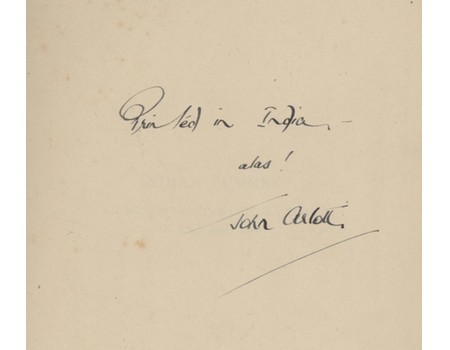 Printed in India, -
alas!
John Arlott.